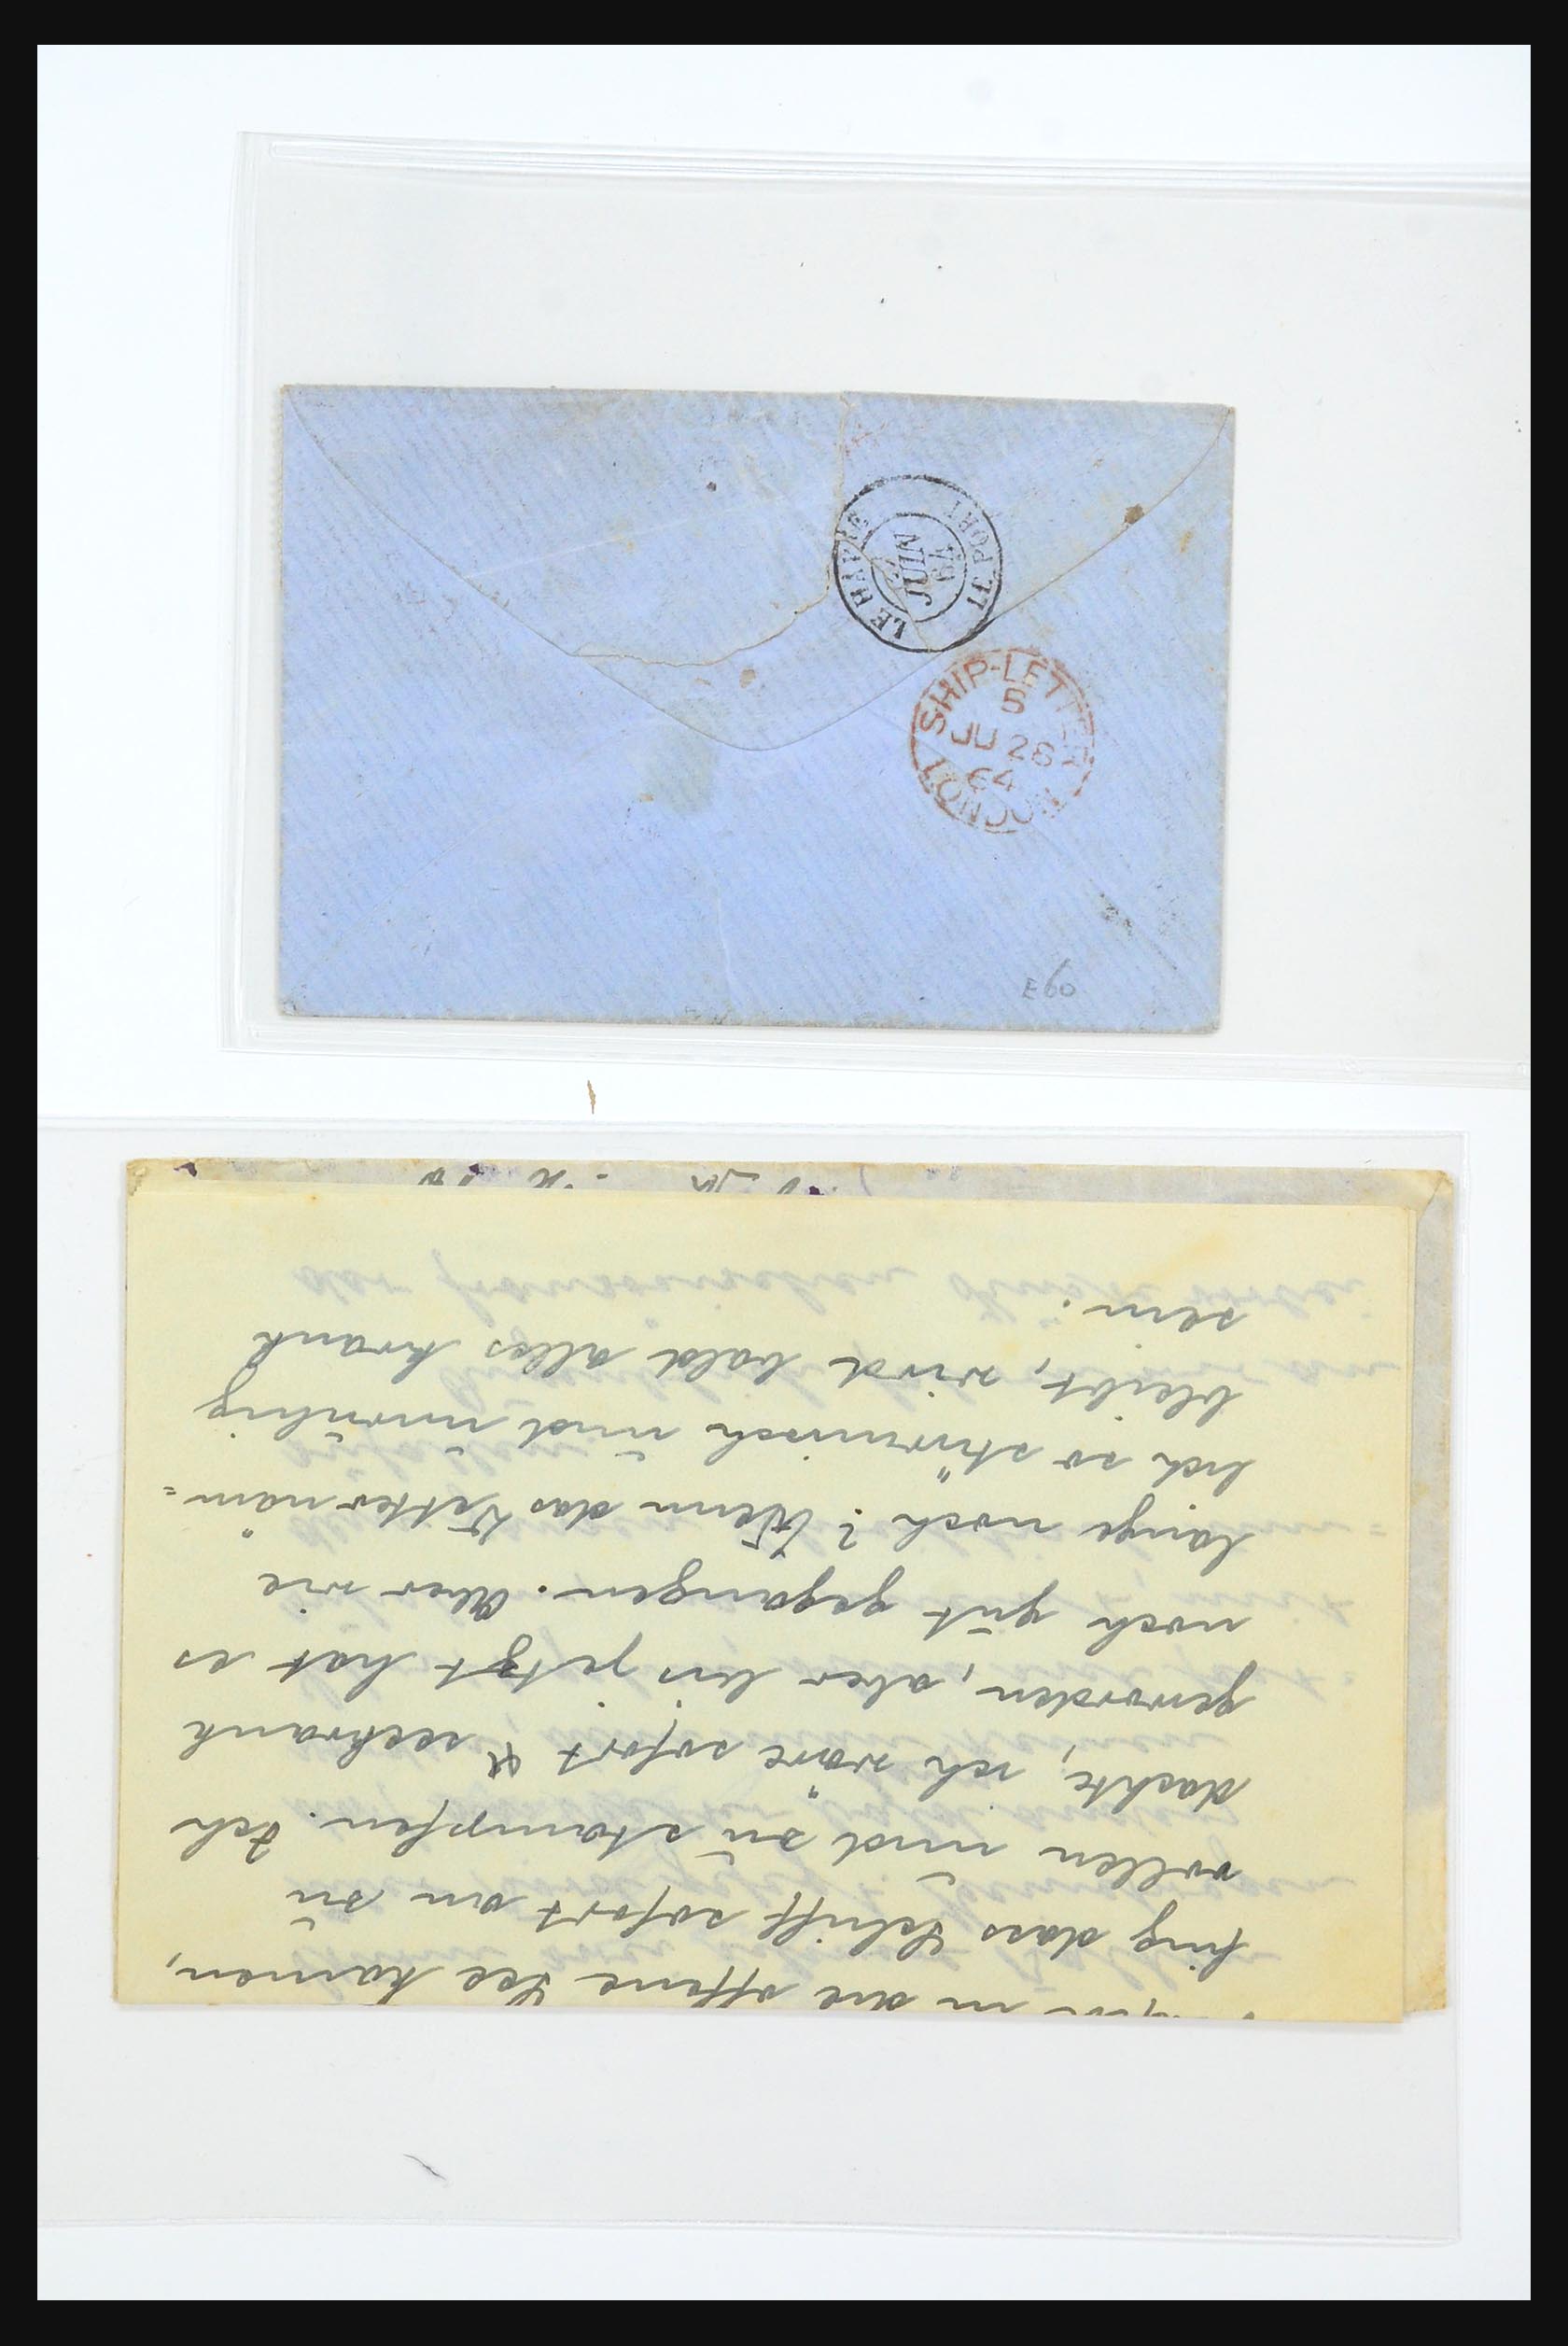 LE HAVRE
LE PORT
JUIN
64
SHIP-LETTER
S
JU 28
64
LONDON
E60
in die offene See kamen,
fing dass Schiff sofort an zu
rollen und zu stampfen. Ich
dachte, ich wäre sofort seekrank
geworden, aber bis jetzt hat es
noch gut gegangen. Aber wie
lange noch? Wenn das Vetter näm=
lich so stürmisch und unruhig
bleibt, wird bald alles krank
sein.